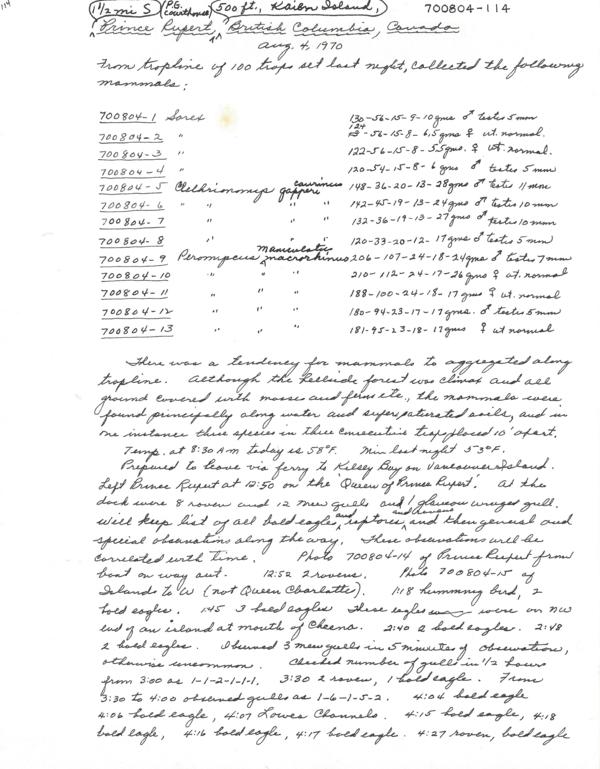 114
1½ mi S (P.G. Courthouse) (500 ft., Kaien Island,) 700804-114
Prince Rupert, British Columbia, Canada
Aug. 4, 1970
From trapline of 100 traps set last night, collected the following
mammals:
700804-1 Sorex 130-56-15-9-10 gms ♂ testes 5 mm
700804-2 " 124-56-15-8-6.5 gms ♀ ut. normal.
700804-3 " 122-56-15-8-5.5 gms. ♀ ut. normal.
700804-4 " 120-54-15-8-6 gms ♂ testes 5 mm
700804-5 Clethrionomys gapperi caurinus 148-36-20-13-28 gms ♂ testes 11 mm
700804-6 " " " " 142-45-19-13-24 gms ♂ testes 10 mm
700804-7 " " " 132-36-19-13-27 gms ♂ testes 10 mm
700804-8 " " " 120-33-20-12-17 gms ♂ testes 5 mm
700804-9 Peromyscus maniculatus macrorhinus 206-107-24-18-24 gms ♂ testes 7 mm
700804-10 " " " 210-112-24-17-26 gms ♀ ut. normal
700804-11 " " " 188-100-24-18-17 gms ♀ ut. normal
700804-12 " " " 180-94-23-17-17 gms. ♂ testes 5 mm
700804-13 " " " 181-95-23-18-17 gms ♀ ut normal
There was a tendency for mammals to aggregated along
trapline. Although the hillside forest was climax and all
ground covered with mosses and ferns etc., the mammals were
found principally along water and supersaturated soils, and in
one instance three species in three consecutive traps placed 10' apart.
Temp. at 8:30 AM today is 58°F. Min last night 53°F.
Prepared to leave via ferry to Kelsey Bay on Vancouver Island.
Left Prince Rupert at 12:50 on the "Queen of Prince Rupert". At the
dock were 8 raven and 12 mew gulls and 1 glaucous winged gull.
Will keep list of all bald eagles, and raptores, and ravens and then general and
special observations along the way. These observations will be
correlated with time. Photo 700804-14 of Prince Rupert from
boat on way out. 12:52 2 ravens. Photo 700804-15 of
Island to W (not Queen Charlotte). 1:18 humming bird, 2
bald eagles. 1:45 3 bald eagles These eagles were on NW
end of an island at mouth of Skeena. 2:40 2 bald eagles. 2:48
2 bald eagles. Observed 3 mew gulls in 5 minutes of observation,
otherwise uncommon. Checked number of gulls in ½ hours
from 3:00 as 1-1-2-1-1-1. 3:30 2 raven, 1 bald eagle. From
3:30 to 4:00 observed gulls as 1-6-1-5-2. 4:04 bald eagle
4:06 bald eagle, 4:07 Lowes Channels. 4:15 bald eagle, 4:18
bald eagle, 4:16 bald eagle, 4:17 bald eagle. 4:27 raven, bald eagle